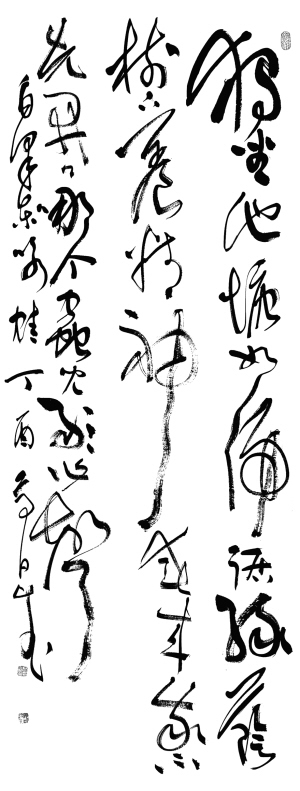 独坐池塘如虎踞绿荫
树下养精神春来我不
先开口那个蟲儿敢作声
毛泽东咏蛙丁酉